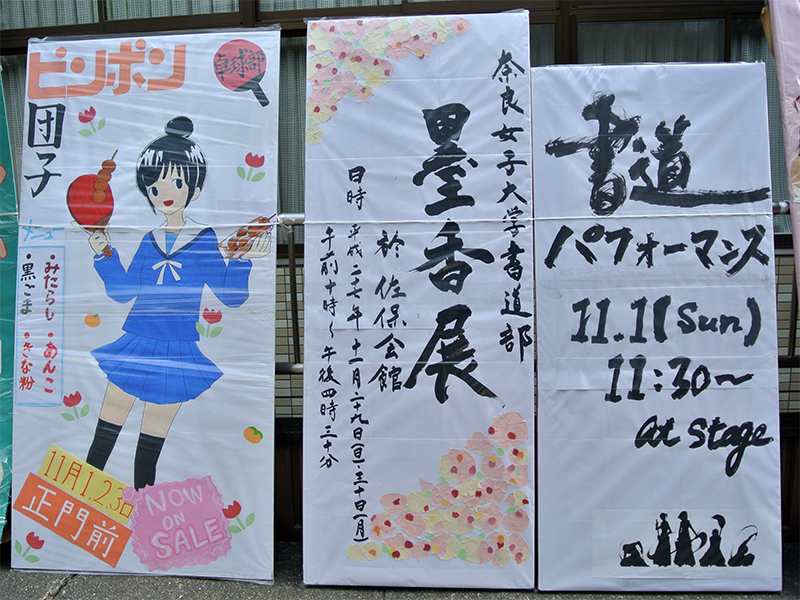 ピンポン
卓球部
団子
メニュー
・みたらし ・あんこ
・黒ごま ・きな粉
11月1.2.3日
正門前
NOW
ON
SALE
奈良女子大学書道部
墨香展
於 佐保会館
日時 平成二十七年十一月二十九日(日)・三十日(月)
午前十時〜午後四時三十分
書道
パフォーマンス
11.1(Sun)
11:30〜
at stage